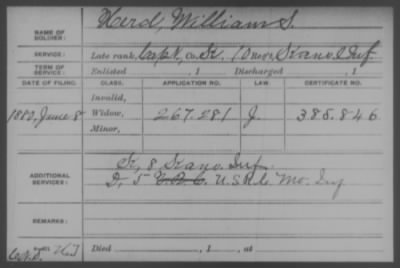 NAME OF SOLDIER: Hurd, William S.
SERVICE: Late rank, Capt, Co. K, 10 Reg't, Kans. Inf.
TERM OF SERVICE: Enlisted , 1 Discharged , 1
DATE OF FILING. CLASS. APPLICATION NO. LAW. CERTIFICATE NO.
Invalid,
1880, June 8 Widow, 267.281 J. 385.846
Minor,
ADDITIONAL SERVICES: K, 8 Kans. Inf.
D, 5 U.S.R.C. Mo. Inf
REMARKS:
Died , 1 , at